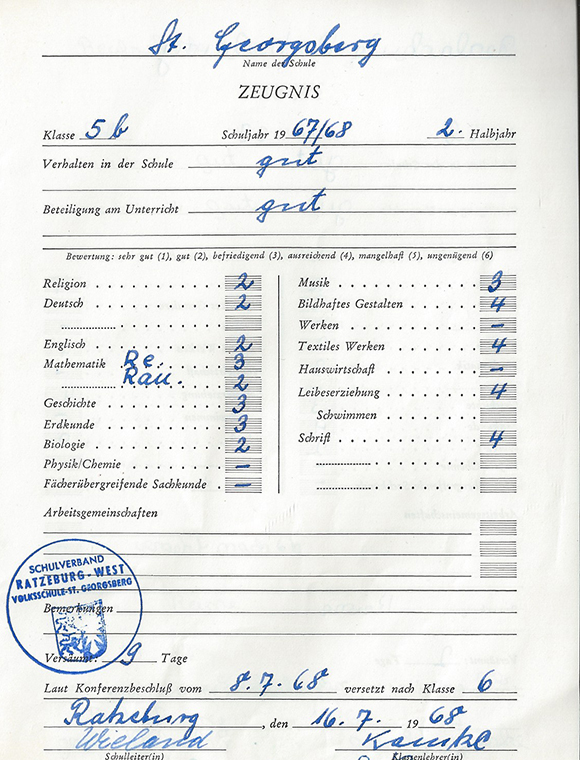 St. Georgsberg
Name der Schule
ZEUGNIS
Klasse 5b Schuljahr 1967/68 2. Halbjahr
Verhalten in der Schule gut
Beteiligung am Unterricht gut
Bewertung: sehr gut (1), gut (2), befriedigend (3), ausreichend (4), mangelhaft (5), ungenügend (6)
Religion 2
Deutsch 2
Englisch 2
Mathematik Re. 3
Rau. 2
Geschichte 3
Erdkunde 3
Biologie 2
Physik/Chemie –
Fächerübergreifende Sachkunde –
Musik 3
Bildhaftes Gestalten 4
Werken –
Textiles Werken 4
Hauswirtschaft –
Leibeserziehung 4
Schwimmen
Schrift 4
Arbeitsgemeinschaften
SCHULVERBAND
RATZEBURG-WEST
VOLKSSCHULE-ST. GEORGSBERG
Bemerkungen
Versäumt: 9 Tage
Laut Konferenzbeschluß vom 8.7.68 versetzt nach Klasse 6
Ratzeburg, den 16.7. 1968
Wieland
Schulleiter(in) Klassenlehrer(in)